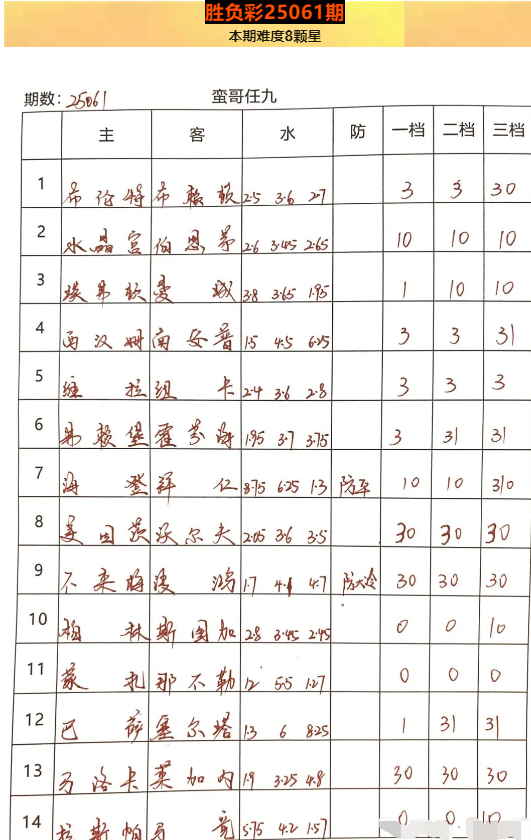 胜负彩25061期
本期难度8颗星
期数: 25061 蛮哥任九
主 客 水 防 一档 二档 三档
1 布伦特 布赖顿 2.5 3.6 2.7 3 3 30
2 水晶宫 伯恩茅 2.6 3.45 2.65 10 10 10
3 埃弗顿 曼城 3.8 3.65 1.95 1 10 10
4 西汉姆 南安普 1.5 4.5 6.25 3 3 31
5 维拉 纽卡 2.4 3.6 2.8 3 3 3
6 弗赖堡 霍芬海 1.95 3.7 3.75 3 31 31
7 海登 拜仁 8.75 6.25 1.3 防平 10 10 310
8 美因茨 沃尔夫 2.05 3.6 3.5 30 30 30
9 不来梅 波鸿 1.7 4.1 4.7 防大冷 30 30 30
10 柏林 斯图加 2.8 3.45 2.45 0 0 10
11 蒙扎 那不勒 12 5.5 1.27 0 0 0
12 巴萨 塞尔塔 1.3 6 8.25 1 31 31
13 马洛卡 莱加内 1.9 3.25 4.8 30 30 30
14 拉斯帕 马竞 5.75 4.2 1.57 0 0 10